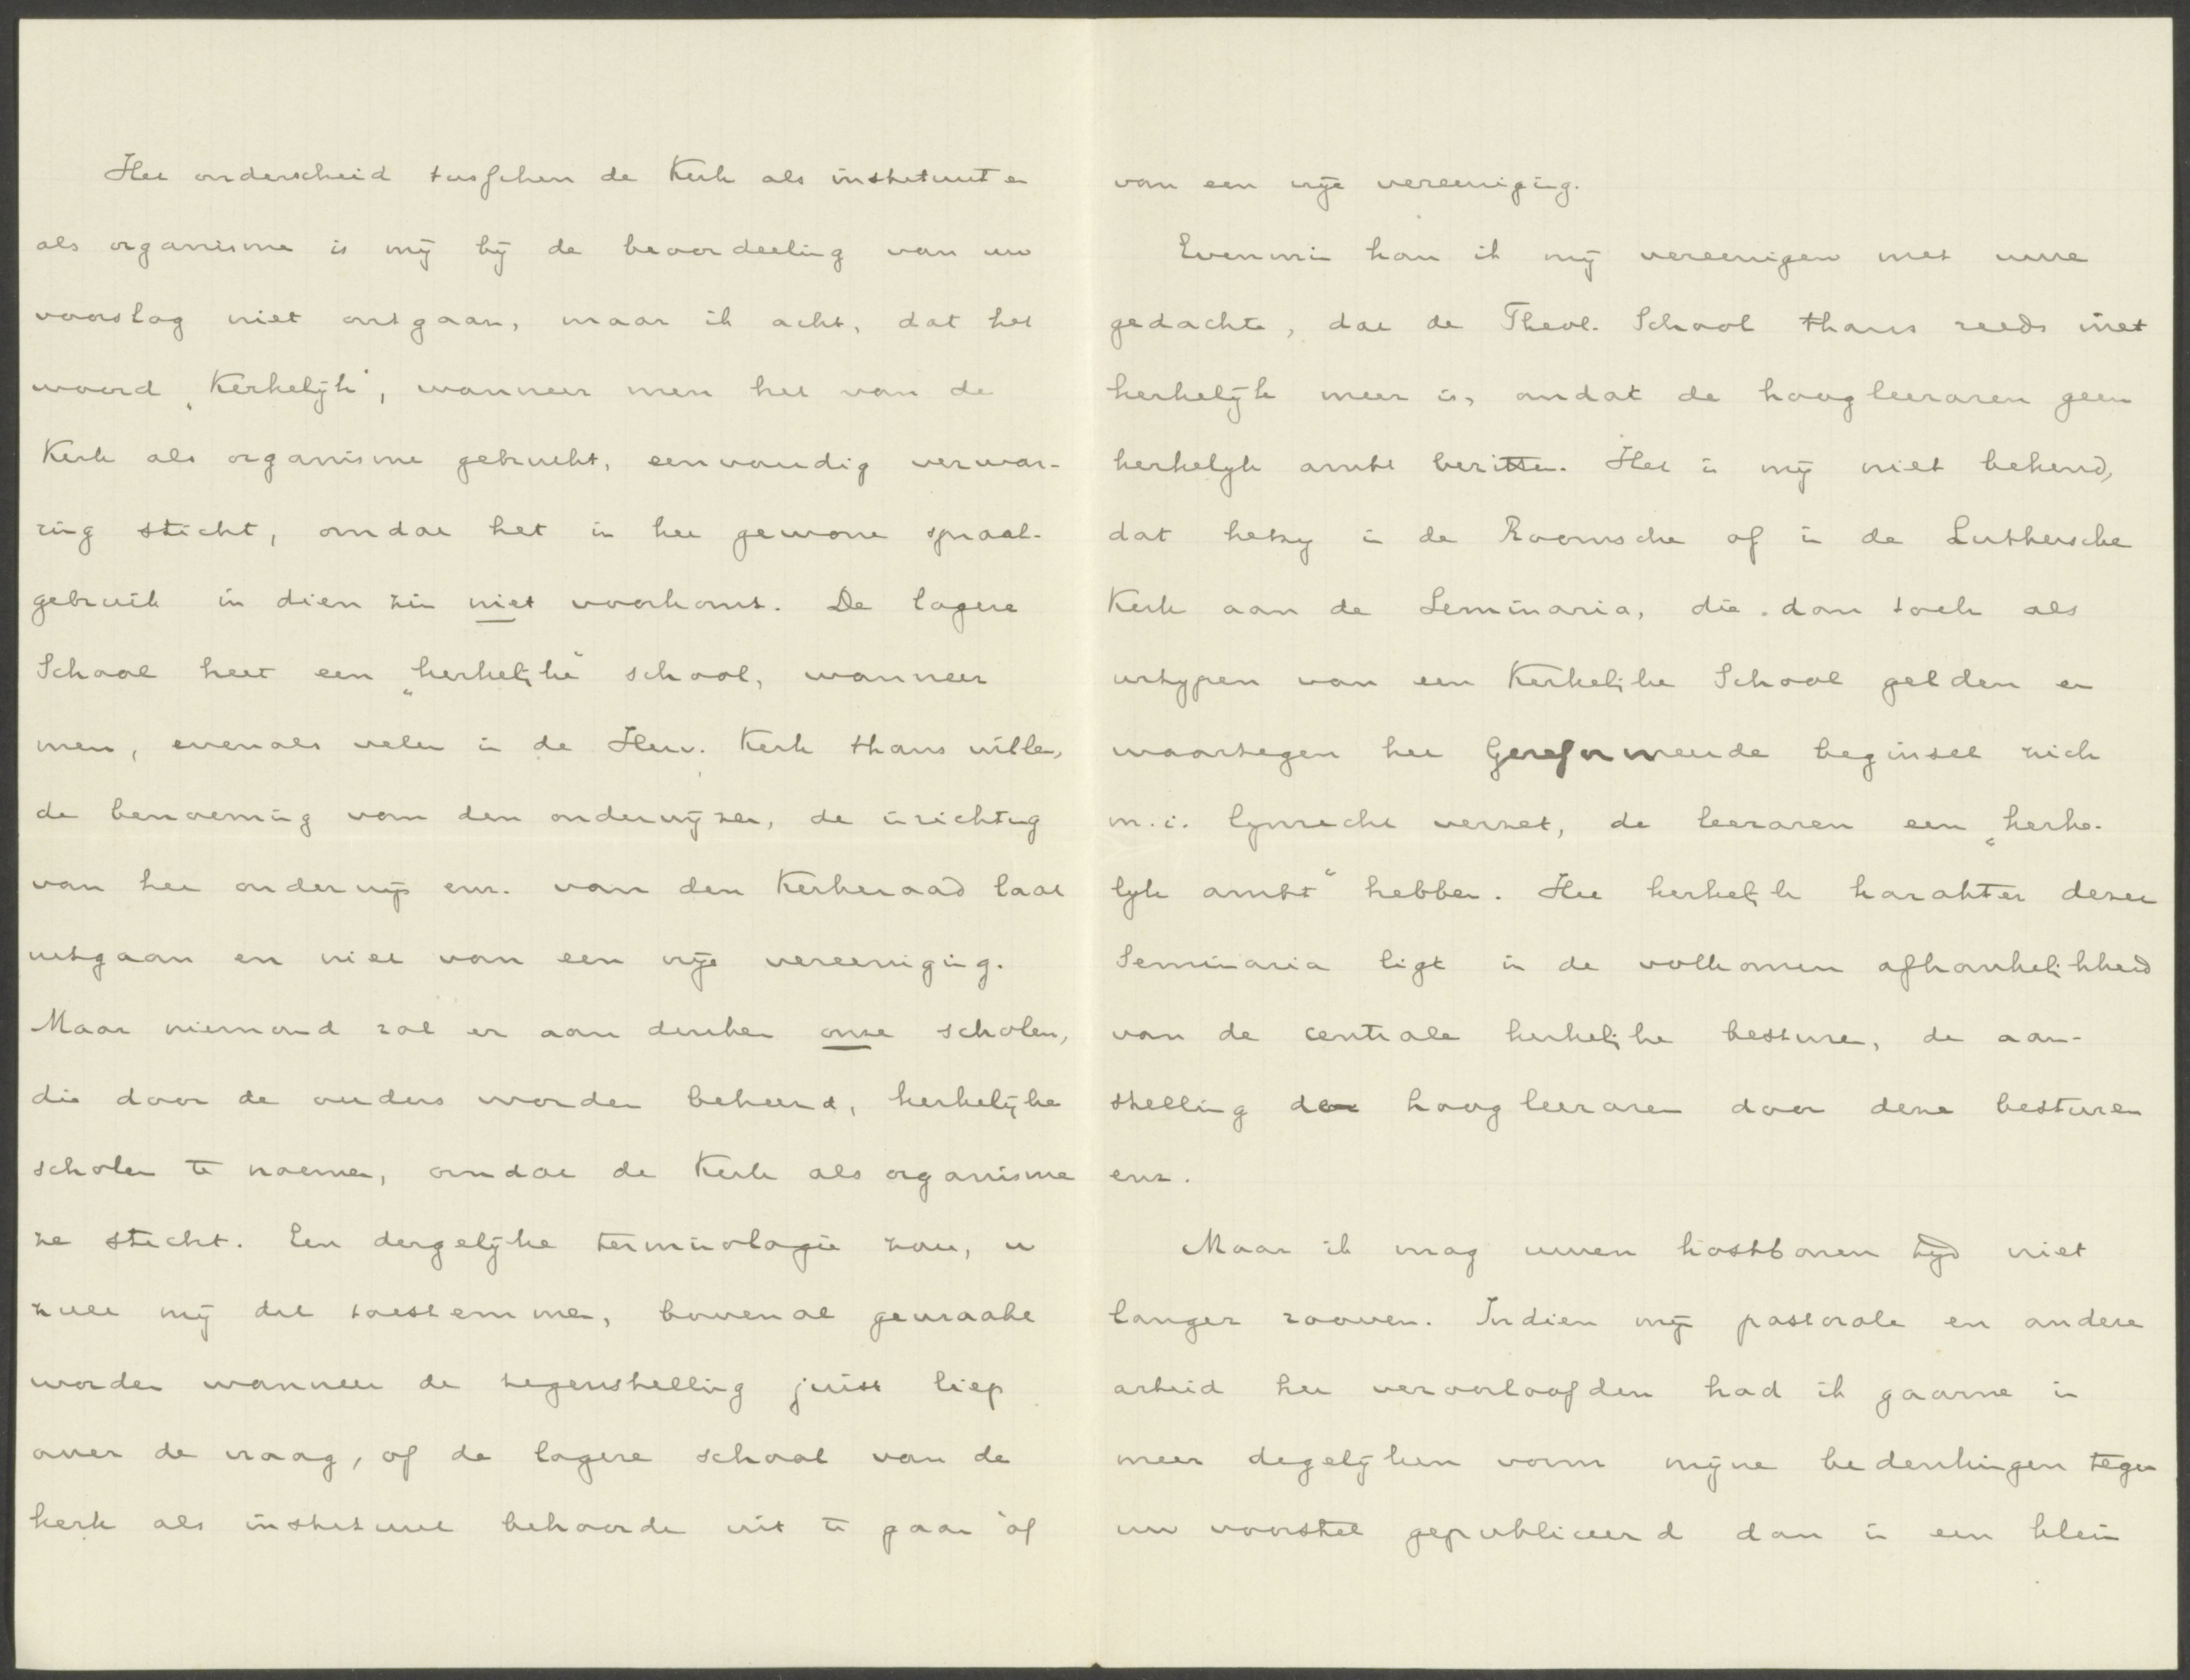 Het onderscheid tusschen de Kerk als instituut en
als organisme is mij bij de beoordeeling van uw
voorslag niet ontgaan, maar ik acht, dat het
woord „Kerkelijk", wanneer men het van de
Kerk als organisme gebruikt, eenvoudig verwar-
ring sticht, omdat het in het gewone spraak-
gebruik in dien zin niet voorkomt. De lagere
School heet een „kerkelijke" school, wanneer
men, evenals velen in de Herv. Kerk thans willen,
de benoeming van den onderwijzer, de inrichting
van het onderwijs enz. van den Kerkeraad laat
uitgaan en niet van een vrije vereeniging.
Maar niemand zal er aan denken onze scholen,
die door de ouders worden beheerd, kerkelijke
scholen te noemen, omdat de Kerk als organisme
ze sticht. Een dergelijke terminologie zou, u
zult mij dit toestemmen, bovenal gewraakt
worden wanneer de tegenstelling juist liep
over de vraag, of de lagere school van de
kerk als instituut behoorde uit te gaan òf
van een vrije vereeniging.
Evenmin kan ik mij vereenigen met uwe
gedachte, dat de Theol. School thans reeds niet
kerkelijk meer is, omdat de hoogleeraren geen
kerkelijk ambt bezitten. Het is mij niet bekend,
dat hetzij in de Roomsche of in de Luthersche
Kerk aan de Seminaria, die dan toch als
urtypen van een Kerkelijke School gelden en
waartegen het Gereformeerde beginsel zich
m.i. lijnrecht verzet, de leeraren een „kerke-
lijk ambt" hebben. Het kerkelijk karakter dezer
Seminaria ligt in de volkomen afhankelijkheid
van de centrale kerkelijke besturen, de aan-
stelling der hoogleeraren door deze besturen
enz.
Maar ik mag uwen kostbaren tijd niet
langer rooven. Indien mijn pastorale en andere
arbeid het veroorloofden had ik gaarne in
meer degelijken vorm mijne bedenkingen tegen
uw voorstel gepubliceerd dan in een klein